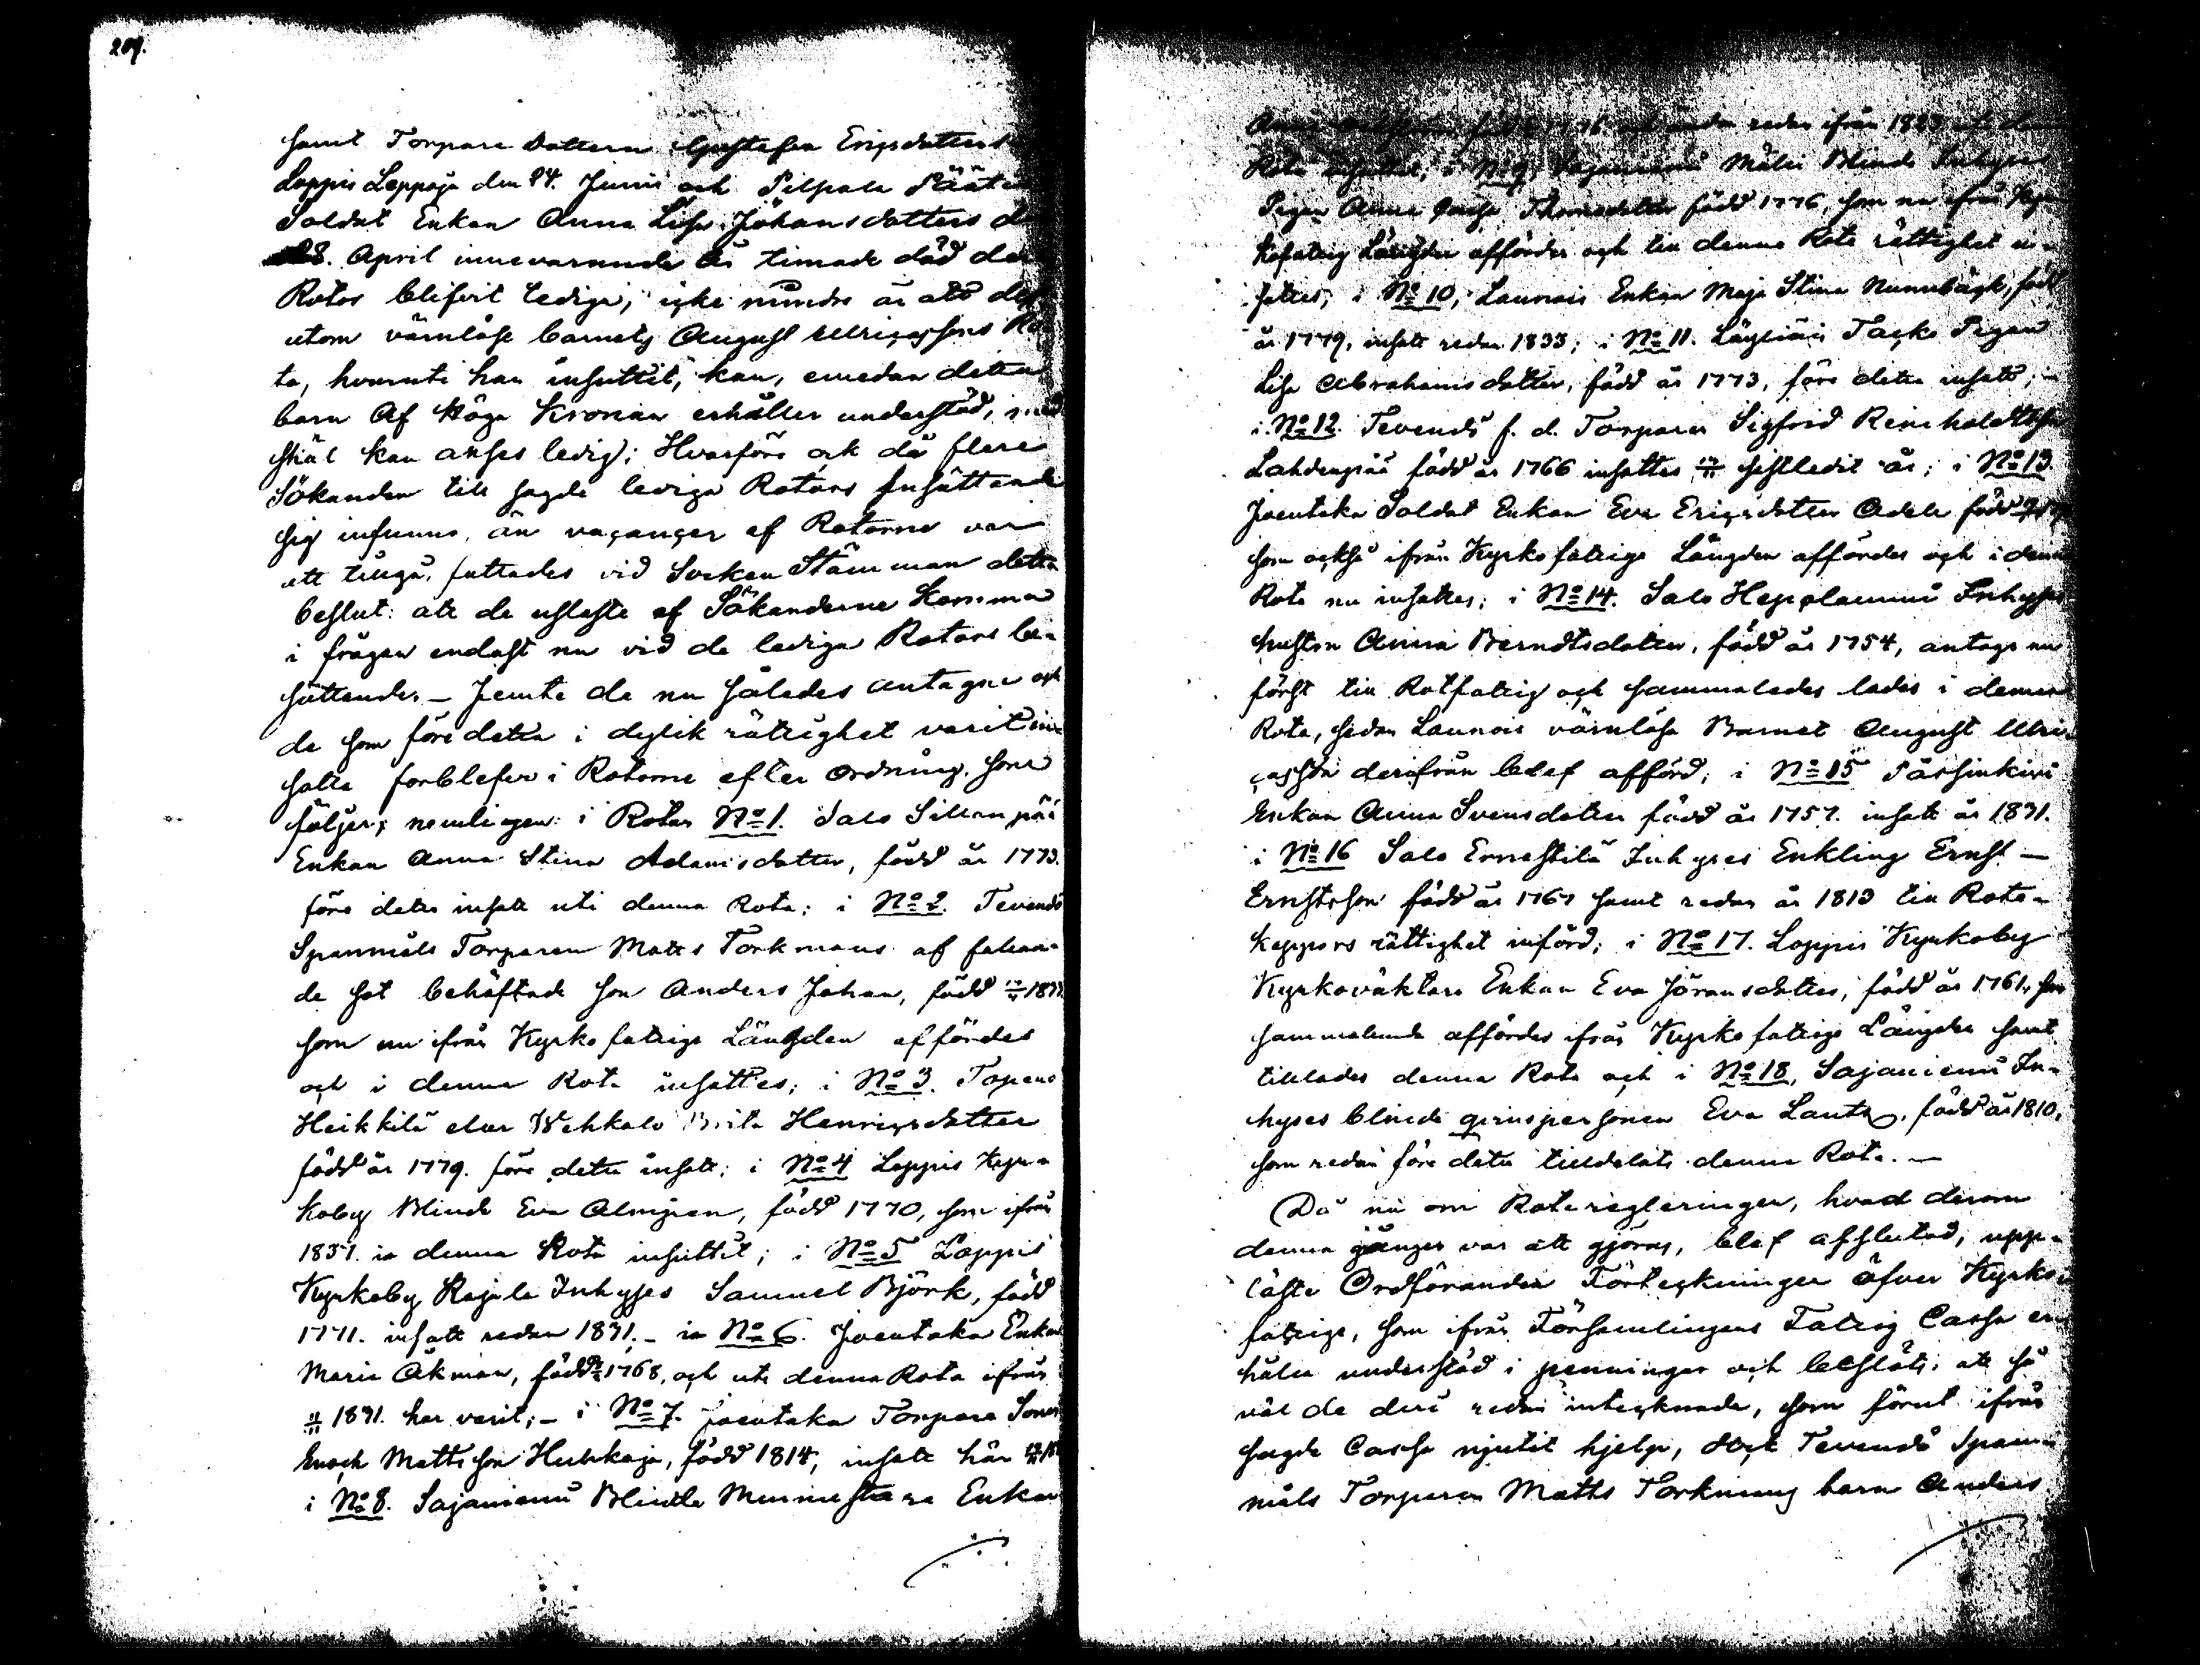 209.
samt Torpare dottern Gustafva Ericsdotters
Loppis Leppoja den 24. Junii och Pilpala Pääti
Soldat Enkan Anna Lisa Johansdotters d
28. April innevarande år timade död de
Rotor blifvit lediga; icke mindre är att dess
utom värnlöse barnets August Ulricassons Ro
ta, hvaruti han insuttit, kan, emedan detta
barn Af Höga Kronan erhåller understöd, med
skäl kan anses ledig; Hvarföre ock då flere
Sökanden till sagde lediga Rotors Insättande
sig infunno, än vacancer af Rotorne var
att tillgå, fattades vid Sockne Stämman detta
beslut: att de uslaste af Sökanderne komma
i frågan endast nu vid de lediga Rotors be-
sättande. – Jemte de nu således antagne och
de som före detta i dylik rättighet varit in
satte forblefvo i Rotorne efter Ordning som
följer; nemligen: i Rotan No 1. Salo Sillanpää
Enkan Anna Stina Adamsdotter, född år 1773.
före detta insatt uti denna Rota; i No 2. Tevändö
Spannmåls Torparen Matts Torkmans af fallan-
de sot behäftade son Anders Johan, född
som nu ifrån Kyrkofattige Längden affördes
och i denna Rota insattes; i No 3. Topeno
Heikkilä eller Wehkalo Brita Henricsdotter
född år 1779. före detta insatt; i No 4 Loppis Kyr-
koby Blinde Eva Almgren, född 1770, som ifrån
1837. i denna Rota insuttit; i No 5 Loppis
Kyrkoby Rajala Inhyses Samuel Björk, född
1771. insatt redan 1831. – i No 6. Joentaka Enkan
Maria Åkman, född 1768, och uti denna Rota ifrån
1831. har varit; – i No 7. Joentaka Torpare Sonen
Enoch Mattsson Huhkaja, född 1814, insatt här
i No 8. Sajaniemi Blinde Murmästare Enkan
född 1776 och redan ifrån 1823
Rota insatter; i No 9. Sajaniemi Mälli Blinde Inhyses
Pigan Anna Caisa Thomsdotter född 1776, som nu ifrån Kyr
kofattig Längden affördes och till denna Rota rättighet in
sattes; i No 10, Launois Enkan Maja Stina Nunnbäck, född
år 1779, insatt redan 1833; i No 11. Läyliäis Tacko Pigan
Lisa Abrahamsdotter, född år 1773, före detta insatt; –
i No 12. Tevändö f. d. Torparen Sigfrid Reinholdtsson
Lahdenpää född år 1766 insattes sistledit år; i No 13
Joentaka Soldat Enkan Eva Ericsdotter Adele född
som också ifrån Kyrkofattige Längden affördes och i denna
Rota nu insattes; i No 14. Salo Heppolammi Inhyses
hustrun Anna Berndtsdotter, född år 1754, antogs nu
först till Rotfattig och sammaledes lades i denna
Rota, sedan Launois värnlösa Barnet August Ulri-
casson derifrån blef afförd; i No 15 Pässinkivi
Enkan Anna Svensdotter född år 1757. insatt år 1831.
i No 16 Salo Ernestilä Inhyses Enkling Ernst –
Ernstsson född år 1767 samt redan år 1813 till Rota-
keppors rättighet införd; i No 17. Loppis Kyrkoby
Kyrkoväktare Enkan Eva Göransdotter, född år 1761, som
sammalunda affördes ifrån Kyrkofattige Längden samt
tilllades denna Rota och i No 18, Sajaniemi In-
hyses blinde qvinspersonen Eva Lantz, född år 1810,
som redan före detta tilldelats denna Rota. –
Då nu om Rotaregleringen, hvad derom
denna gången var att gjöras, blef afslutad, upp-
läste Ordföranden Förteckningen öfver Kyrko-
fattige, som ifrån Församlingens Fattig Cassa er-
hålla understöd i penningar och beslöts: att så
väl de deri redan intecknade, som förut ifrån
sagde Cassa njutit hjelp, Och Tevändö Spann-
måls Torparen Matths Torkmans barn Anders